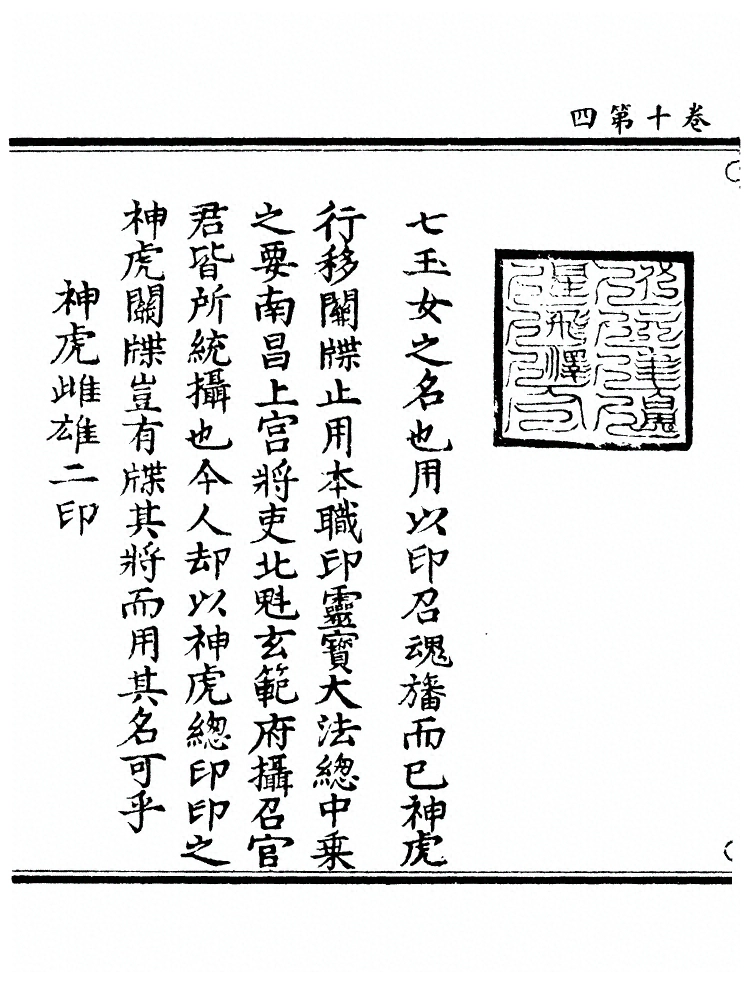 卷十第四
七玉女之名也用以印召魂旛而已神虎
行移關牒止用本職印靈寶大法總中乗
之要南昌上宫將吏北魁玄範府攝召官
君皆所統攝也今人却以神虎總印印之
神虎關牒豈有牒其將而用其名可乎
神虎雌雄二印